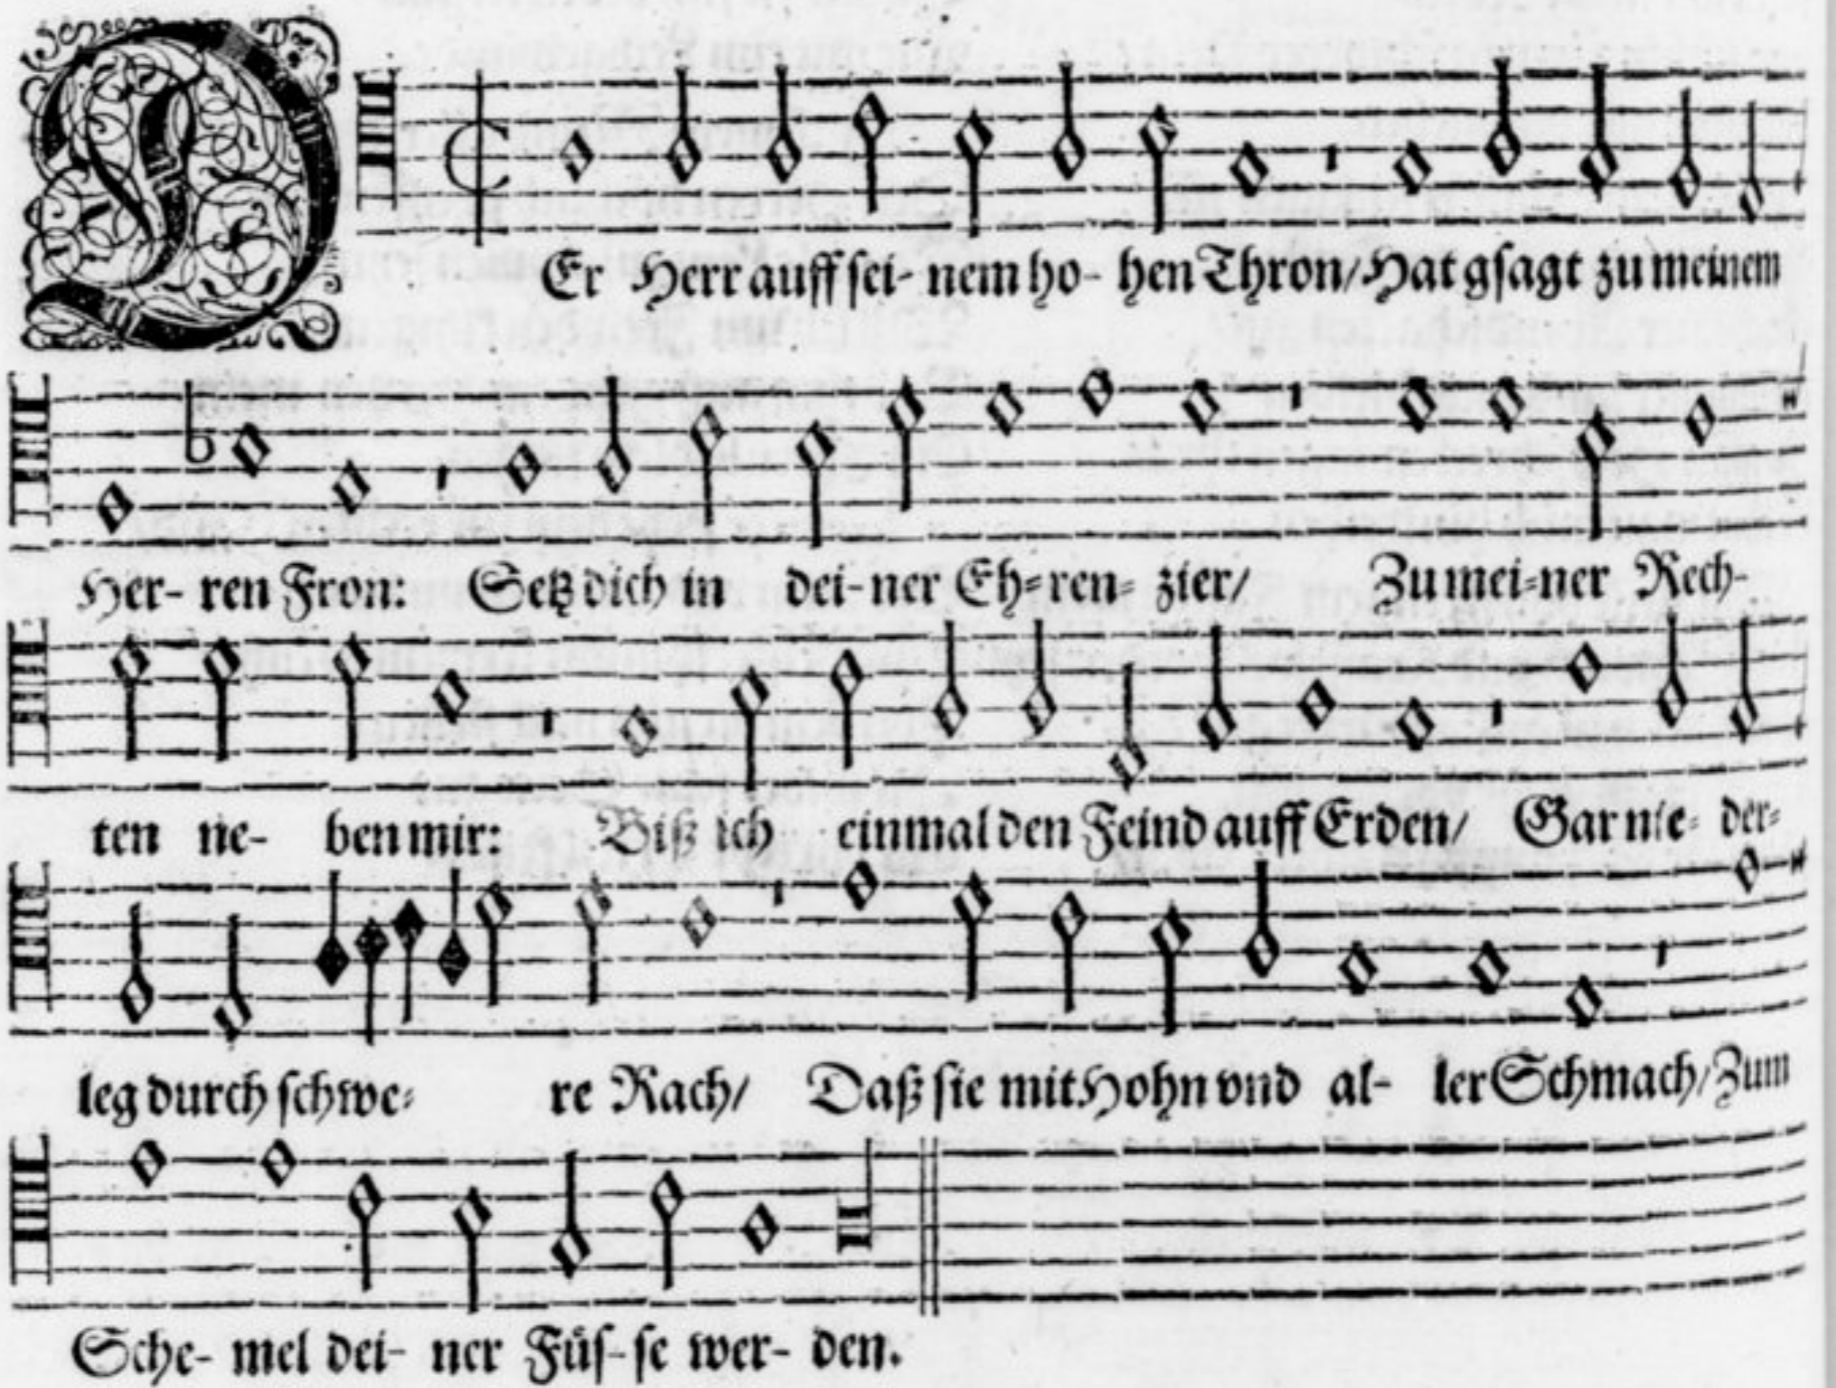 DEr Herr auff sei- nem ho- hen Thron/ Hat gsagt zu meinem
Her- ren Fron: Setz dich in dei- ner Eh- ren- zier/ Zu mei- ner Rech-
ten ne- ben mir: Biß ich einmal den Feind auff Erden/ Gar nie- der-
leg durch schwe- re Rach/ Daß sie mit Hohn vnd al- ler Schmach/ Zum
Sche- mel dei- ner Füs- se wer- den.